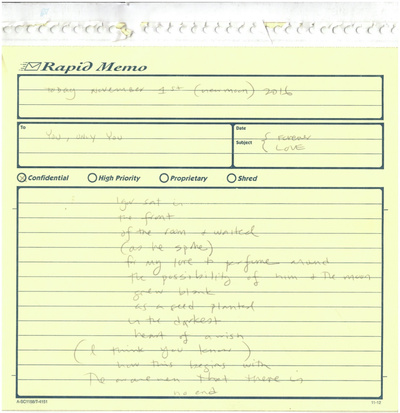 Rapid Memo
today November 1st (new moon) 2016
To
You, only You
Date
Subject
forever
LOVE
Confidential
High Priority
Proprietary
Shred
sat in
the front
of the room + waited
(as he spoke)
for my love to perfume around
the possibility of him + The moon
grew blank
as a seed planted
in the darkest
heart of a wish
(I think you know)
how this begins with
The moment that there is
no end
11-12